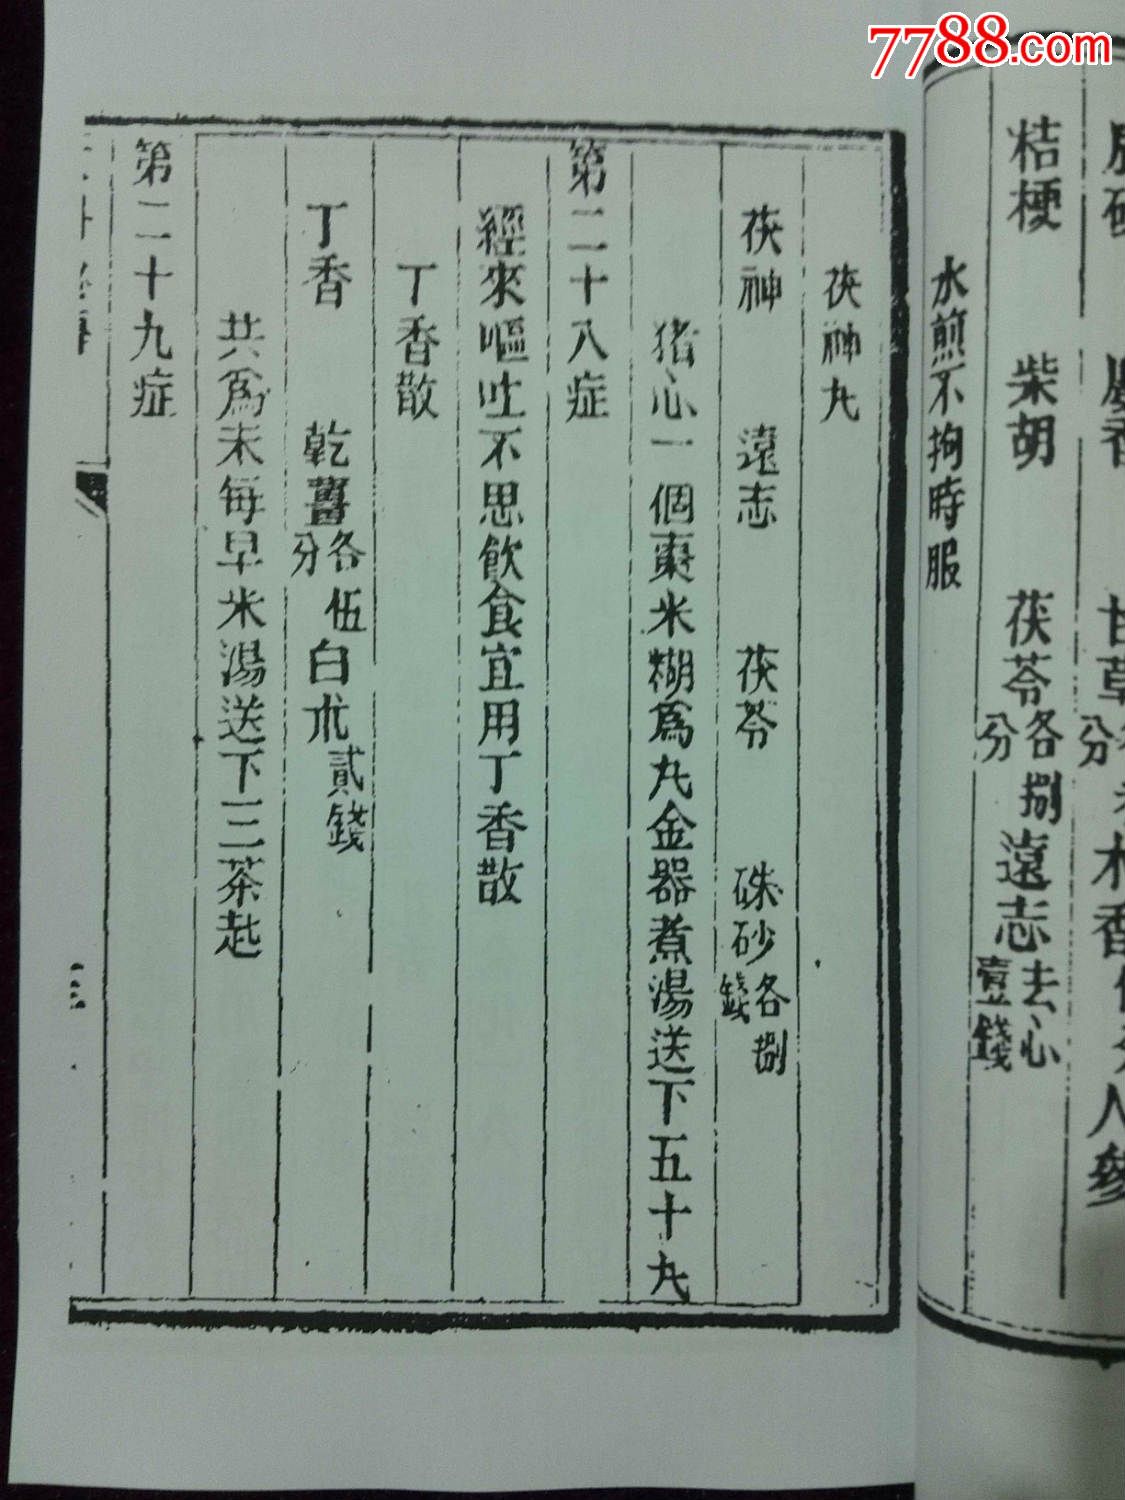 7788.com
桔梗 柴胡 茯苓各捌分 遠志去心壹錢
水煎不拘時服
茯神丸
茯神 遠志 茯苓 硃砂各捌錢
猪心一個棗米糊爲丸金器煮湯送下五十丸
第二十八症
經來嘔吐不思飲食宜用丁香散
丁香散
丁香 乾薑各伍分 白朮貳錢
共爲末每早米湯送下三茶匙
第二十九症